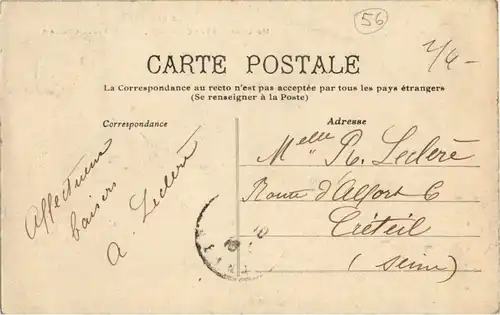 56
CARTE POSTALE
La Correspondance au recto n'est pas acceptée par tous les pays étrangers
(Se renseigner à la Poste)
Correspondance
Adresse
Affectueux
baisers
A. Lecleré
Melle R. Lecleré
Route d'Alfort 6
Créteil
(Seine)